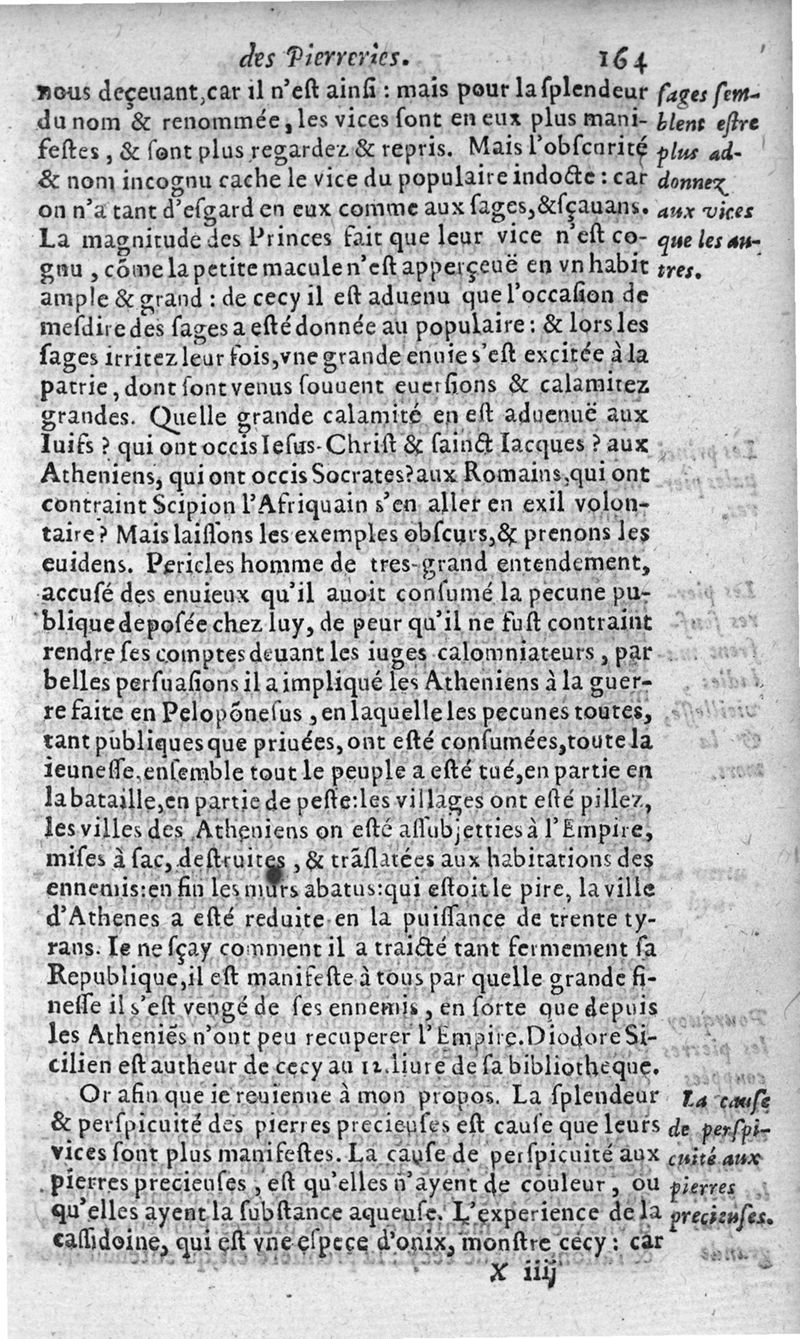 des Pierreries. 164
nous deçeuant,car il n'eſt ainſi : mais pour la ſplendeur
du nom & renommée, les vices ſont en eux plus mani-
feſtes , & ſont plus regardez & repris. Mais l'obſcurité
& nom incognu cache le vice du populaire indocte : car
on n'a tant d'eſgard en eux comme aux ſages,&ſçauans.
La magnitude des Princes fait que leur vice n'eſt co-
gnu , cõme la petite macule n'eſt apperçeuë en vn habit
ample & grand : de cecy il eſt aduenu que l'occaſion de
meſdire des ſages a eſté donnée au populaire : & lors les
ſages irritez leur fois,vne grande enuie s'eſt excitée à la
patrie, dont ſont venus ſouuent euerſions & calamitez
grandes. Quelle grande calamité en eſt aduenuë aux
Iuifs ? qui ont occis Ieſus-Chriſt & ſainct Iacques ? aux
Atheniens, qui ont occis Socrates? aux Romains,qui ont
contraint Scipion l'Afriquain s'en aller en exil volon-
taire ? Mais laiſſons les exemples obſcurs,& prenons les
euidens. Pericles homme de tres-grand entendement,
accuſé des enuieux qu'il auoit conſumé la pecune pu-
blique depoſée chez luy, de peur qu'il ne fuſt contraint
rendre ſes comptes deuant les iuges calomniateurs , par
belles perſuaſions il a impliqué les Atheniens à la guer-
re faite en Pelopõneſus , en laquelle les pecunes toutes,
tant publiques que priuées, ont eſté conſumées,toute la
ieuneſſe,enſemble tout le peuple a eſté tué,en partie en
la bataille,en partie de peſte:les villages ont eſté pillez,
les villes des Atheniens on eſté aſſubjetties à l'Empire,
miſes à ſac, deſtruites , & trãſlatées aux habitations des
ennemis:en fin les murs abatus:qui eſtoit le pire, la ville
d'Athenes a eſté reduite en la puiſſance de trente ty-
rans. Ie ne ſçay comment il a traicté tant fermement ſa
Republique,il eſt manifeſte à tous par quelle grande fi-
neſſe il s'eſt vengé de ſes ennemis , en ſorte que depuis
les Atheniẽs n'ont peu recuperer l'Empire. Diodore Si-
cilien eſt autheur de cecy au 12. liure de ſa bibliotheque.
Or afin que ie reuienne à mon propos. La ſplendeur
& perſpicuité des pierres precieuſes eſt cauſe que leurs
vices ſont plus manifeſtes. La cauſe de perſpicuité aux
pierres precieuſes , eſt qu'elles n'ayent de couleur , ou
qu'elles ayent la ſubſtance aqueuſe. L'experience de la
caſſidoine, qui eſt vne eſpece d'onix, monſtre cecy : car
X iiij
ſages ſem-
blent eſtre
plus ad-
donnez
aux vices
que les au-
tres.
La cauſe
de perſpi-
cuité aux
pierres
precieuſes.